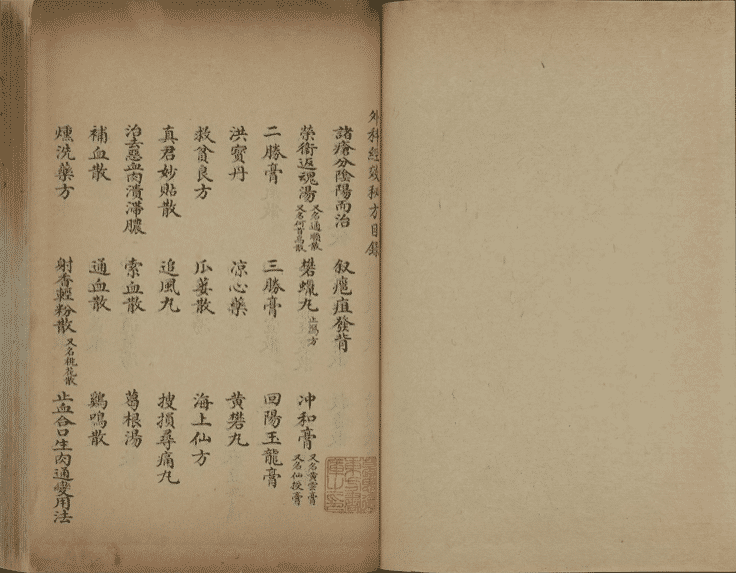 外科經效秘方目錄
諸瘡分陰陽而治 叙瘡疽發背
榮衛返魂湯 又名通順散 又名何首烏散 礬蠟丸 止瀉方 冲和膏 又名黃雲膏 又名仙授膏
二勝膏 三勝膏 回陽玉龍膏
洪寳丹 凉心藥 黄礬丸
救貧良方 瓜蔞散 海上仙方
真君妙貼散 追風丸 搜損尋痛丸
治去惡血肉潰滯膿 索血散 葛根湯
補血散 通血散 鷄鳴散
燻洗藥方 射香輕粉散 又名桃花散 止血合口生肉通變用法